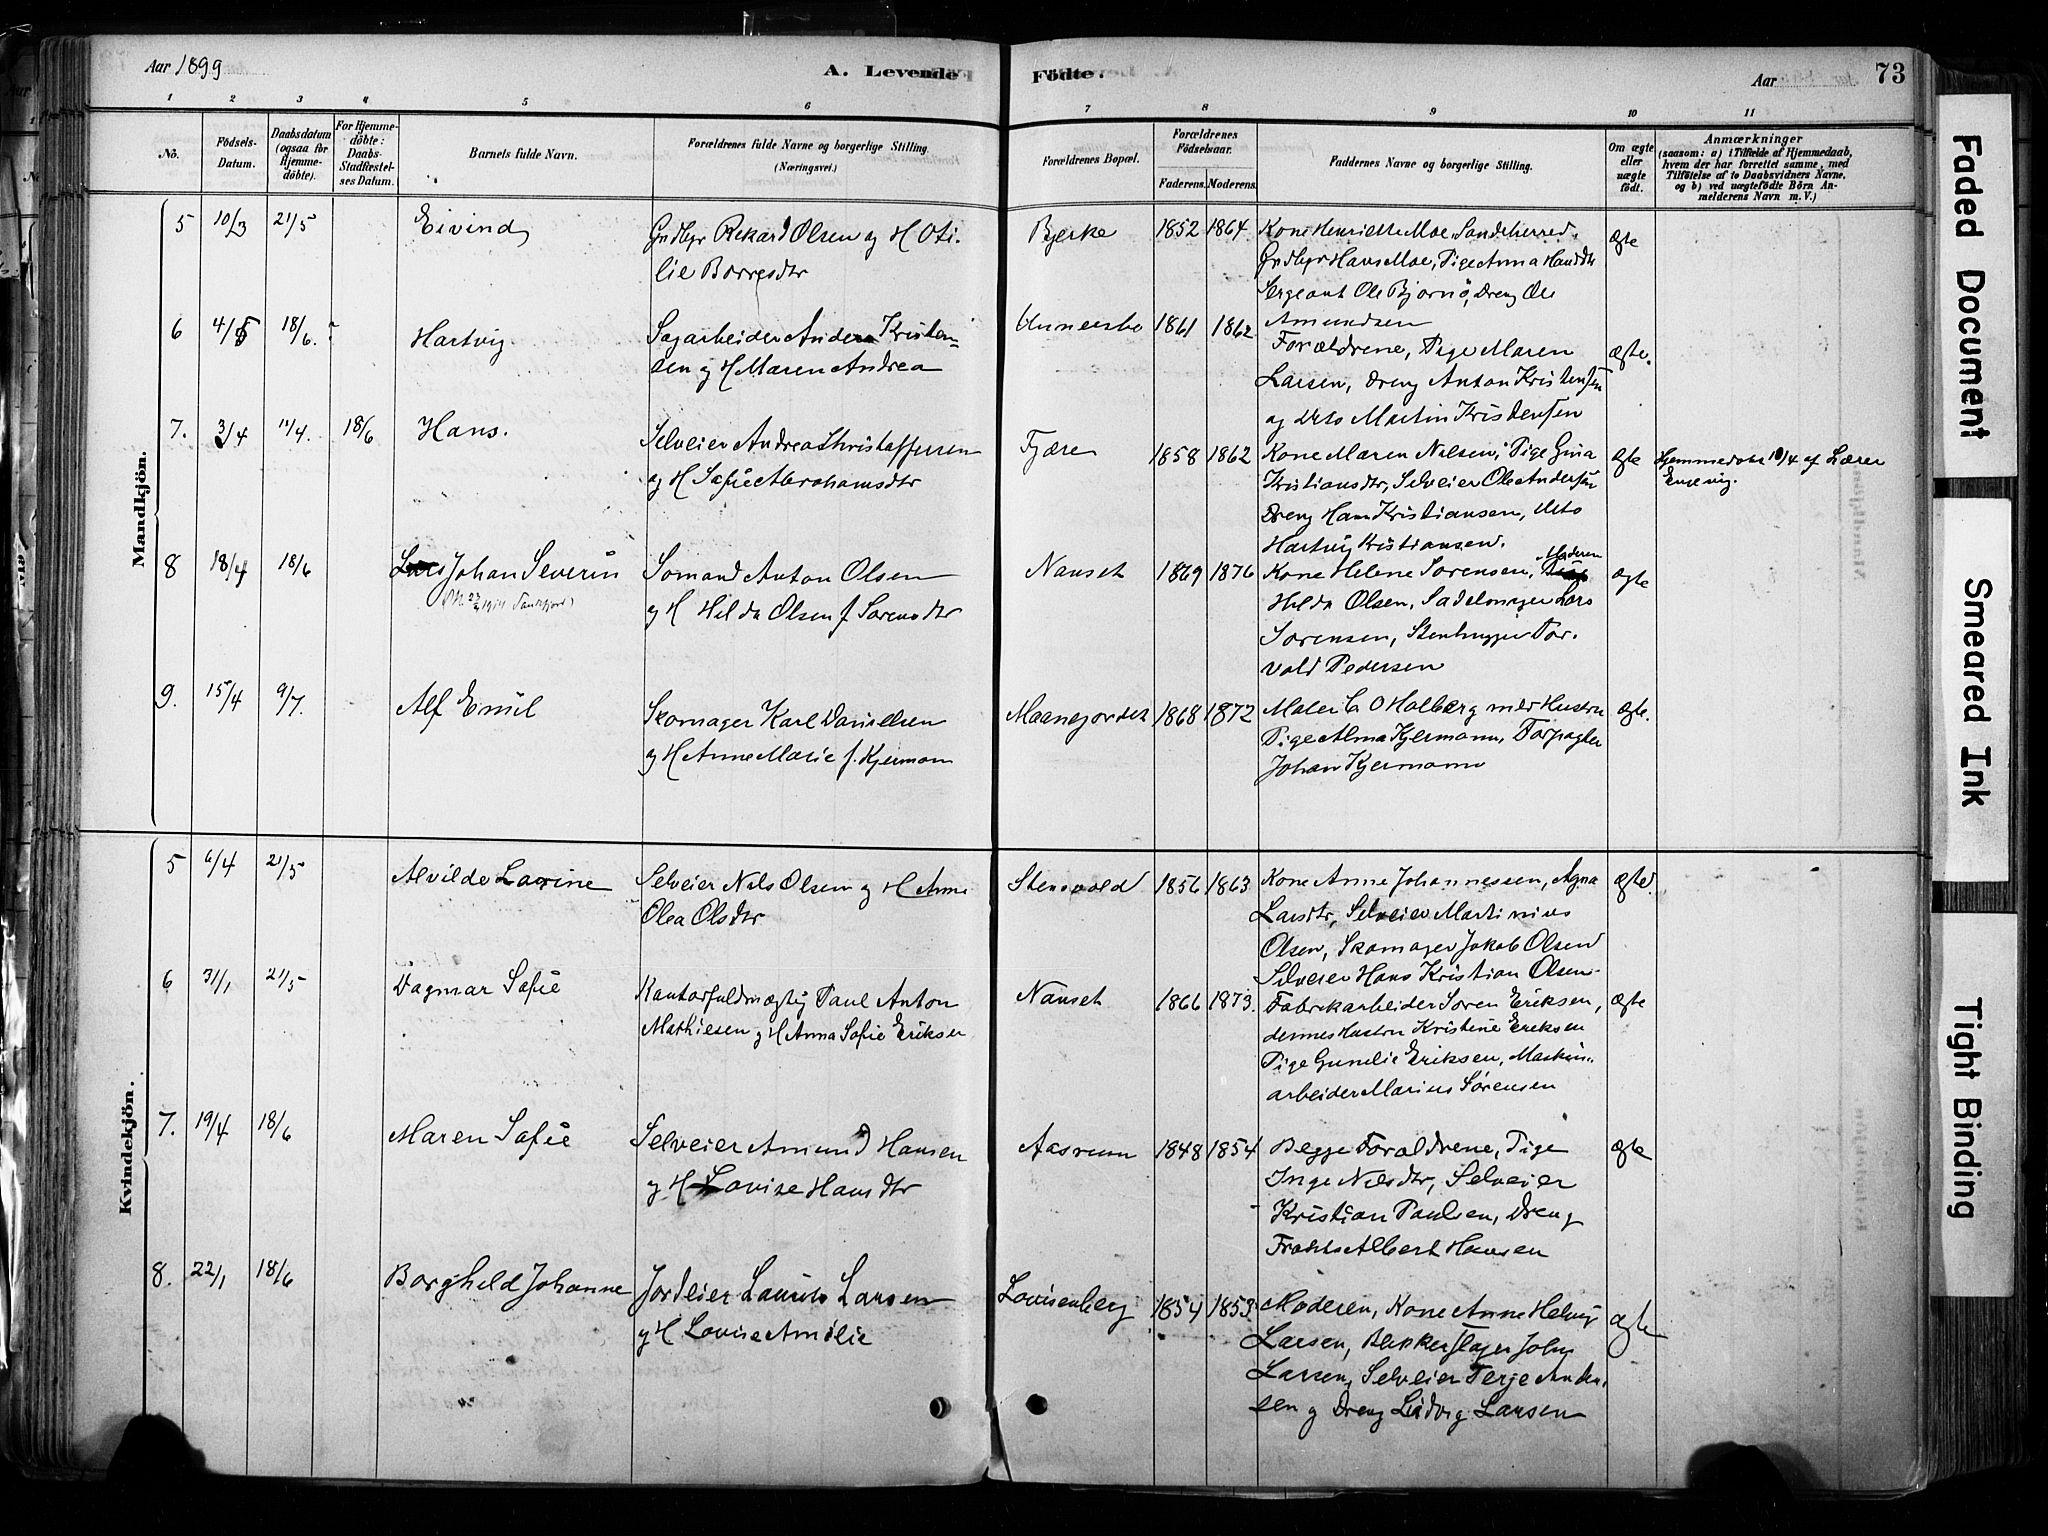 Aar 1899
A. Levende
Födte.
Aar
73
1 2 3 4 5 6 7 8 9 10 11
No.
Födsels-
Datum.
Daabsdatum
(ogsaa for
Hjemme-
döbte).
For Hjemme-
döbte:
Daabs-
Stadfæstel-
ses Datum.
Barnets fulde Navn.
Forældrenes fulde Navne og borgerlige Stilling.
(Næringsvei.)
Forældrenes Bopæl.
Forældrenes
Födselsaar.
Faderens. Moderens.
Faddernes Navne og borgerlige Stilling.
Om ægte
eller
uægte
födt.
Anmærkninger
(saasom: a) i Tilfælde af Hjemmedaab,
hvem der har forrettet samme, med
Tilföielse af to Daabsvidners Navne,
og b) ved uægtefödte Börn An-
melderens Navn m. V.)
Mandkjön.
5 10/3 21/5 Eivind
Grdbgr Rikard Olsen og H Oti-
lie Borresdtr
Bjerke 1852 1864
Kone Henriette Moe, Sandeherred.
Grdbgr Hans Moe, Pige Anna Hansdtr
Sergeant Ole Bjornö, Dreng Ole
Amundsen
ægte
6 18/6. Hartvig
Sagarbeider Anders Kristen-
sen og H Maren Andrea
1861 1862
Forældrene, Pige Maren
Larsen, Dreng Anton Kristensen
og Dito Martin Kristensen
ægte.
7. 3/4 11/4. 18/6 Hans.
Selveier Andreas Kristoffersen
og H Sofie Abrahamsdtr
Fjære 1858 1862
Kone Maren Nilsen, Pige Gina
Kristiansdtr, Selveier Ole Andersen
Dreng Hans Kristiansen, Dito
Hartvig Kristiansen.
ægte
Hjemmedøbt 10/4 af Lærer
Engevig.
8 18/4 18/6 Lars Johan Severin
Somand Anton Olsen
og H Hilda Olsen f Sorensdtr
Nanset 1869 1876
Kone Helene Sorensen, Moderen
Hilda Olsen, Sadelmager Lars
Sorensen, Stenhugger Tor-
vald Pedersen
ægte
9. 15/4 9/7. Alf Emil
Skomager Karl Danielsen
og H Anne Marie f. Kjermann
Maanejordet 1868 1872
Maler C O Holberg med Hustru
Pige Alma Kjermann, Forpagter
Johan Kjermann
ægte.
Kvindekjön.
5 6/4 21/5 Alvilde Lovine
Selveier Nils Olsen og H Anne
Olea Olsdtr
Stensvold 1856 1863
Kone Anne Johannessen, Agna
Larsdtr, Selveier Martinius
Olsen, Skomager Jakob Olsen
Selveier Hans Kristian Olsen-
ægte.
6 31/1 21/5 Dagmar Sofie
Kontorfuldmægtig Paul Anton
Mathiesen og H Anna Sofie Eriksen
Nanset 1866 1873.
Fabrikarbeider Soren Eriksen,
dennes Hustru Kristine Eriksen
Pige Gunelie Eriksen, Maskin-
arbeider Marius Sørensen
ægte
7. 19/4 18/6 Maren Sofie
Selveier Amund Hansen
og H Lovise Hansdtr
Aasrum 1848 1854
Begge Foraldrene, Pige
Inge Nilsdtr, Selveier
Kristian Paulsen, Dreng
Frants Albert Hansen
ægte
8. 22/1 18/6 Borghild Johanne
Jordeier Laurits Larsen
og H Lovise Amilie
Lovisenberg 1854 1853
Moderen, Kone Anne Helvig
Larsen, Blikkenslager John
Larsen, Selveier Terje Ander-
sen og Dreng Ludvig Larsen
ægte
Faded Document
Smeared Ink
Tight Binding